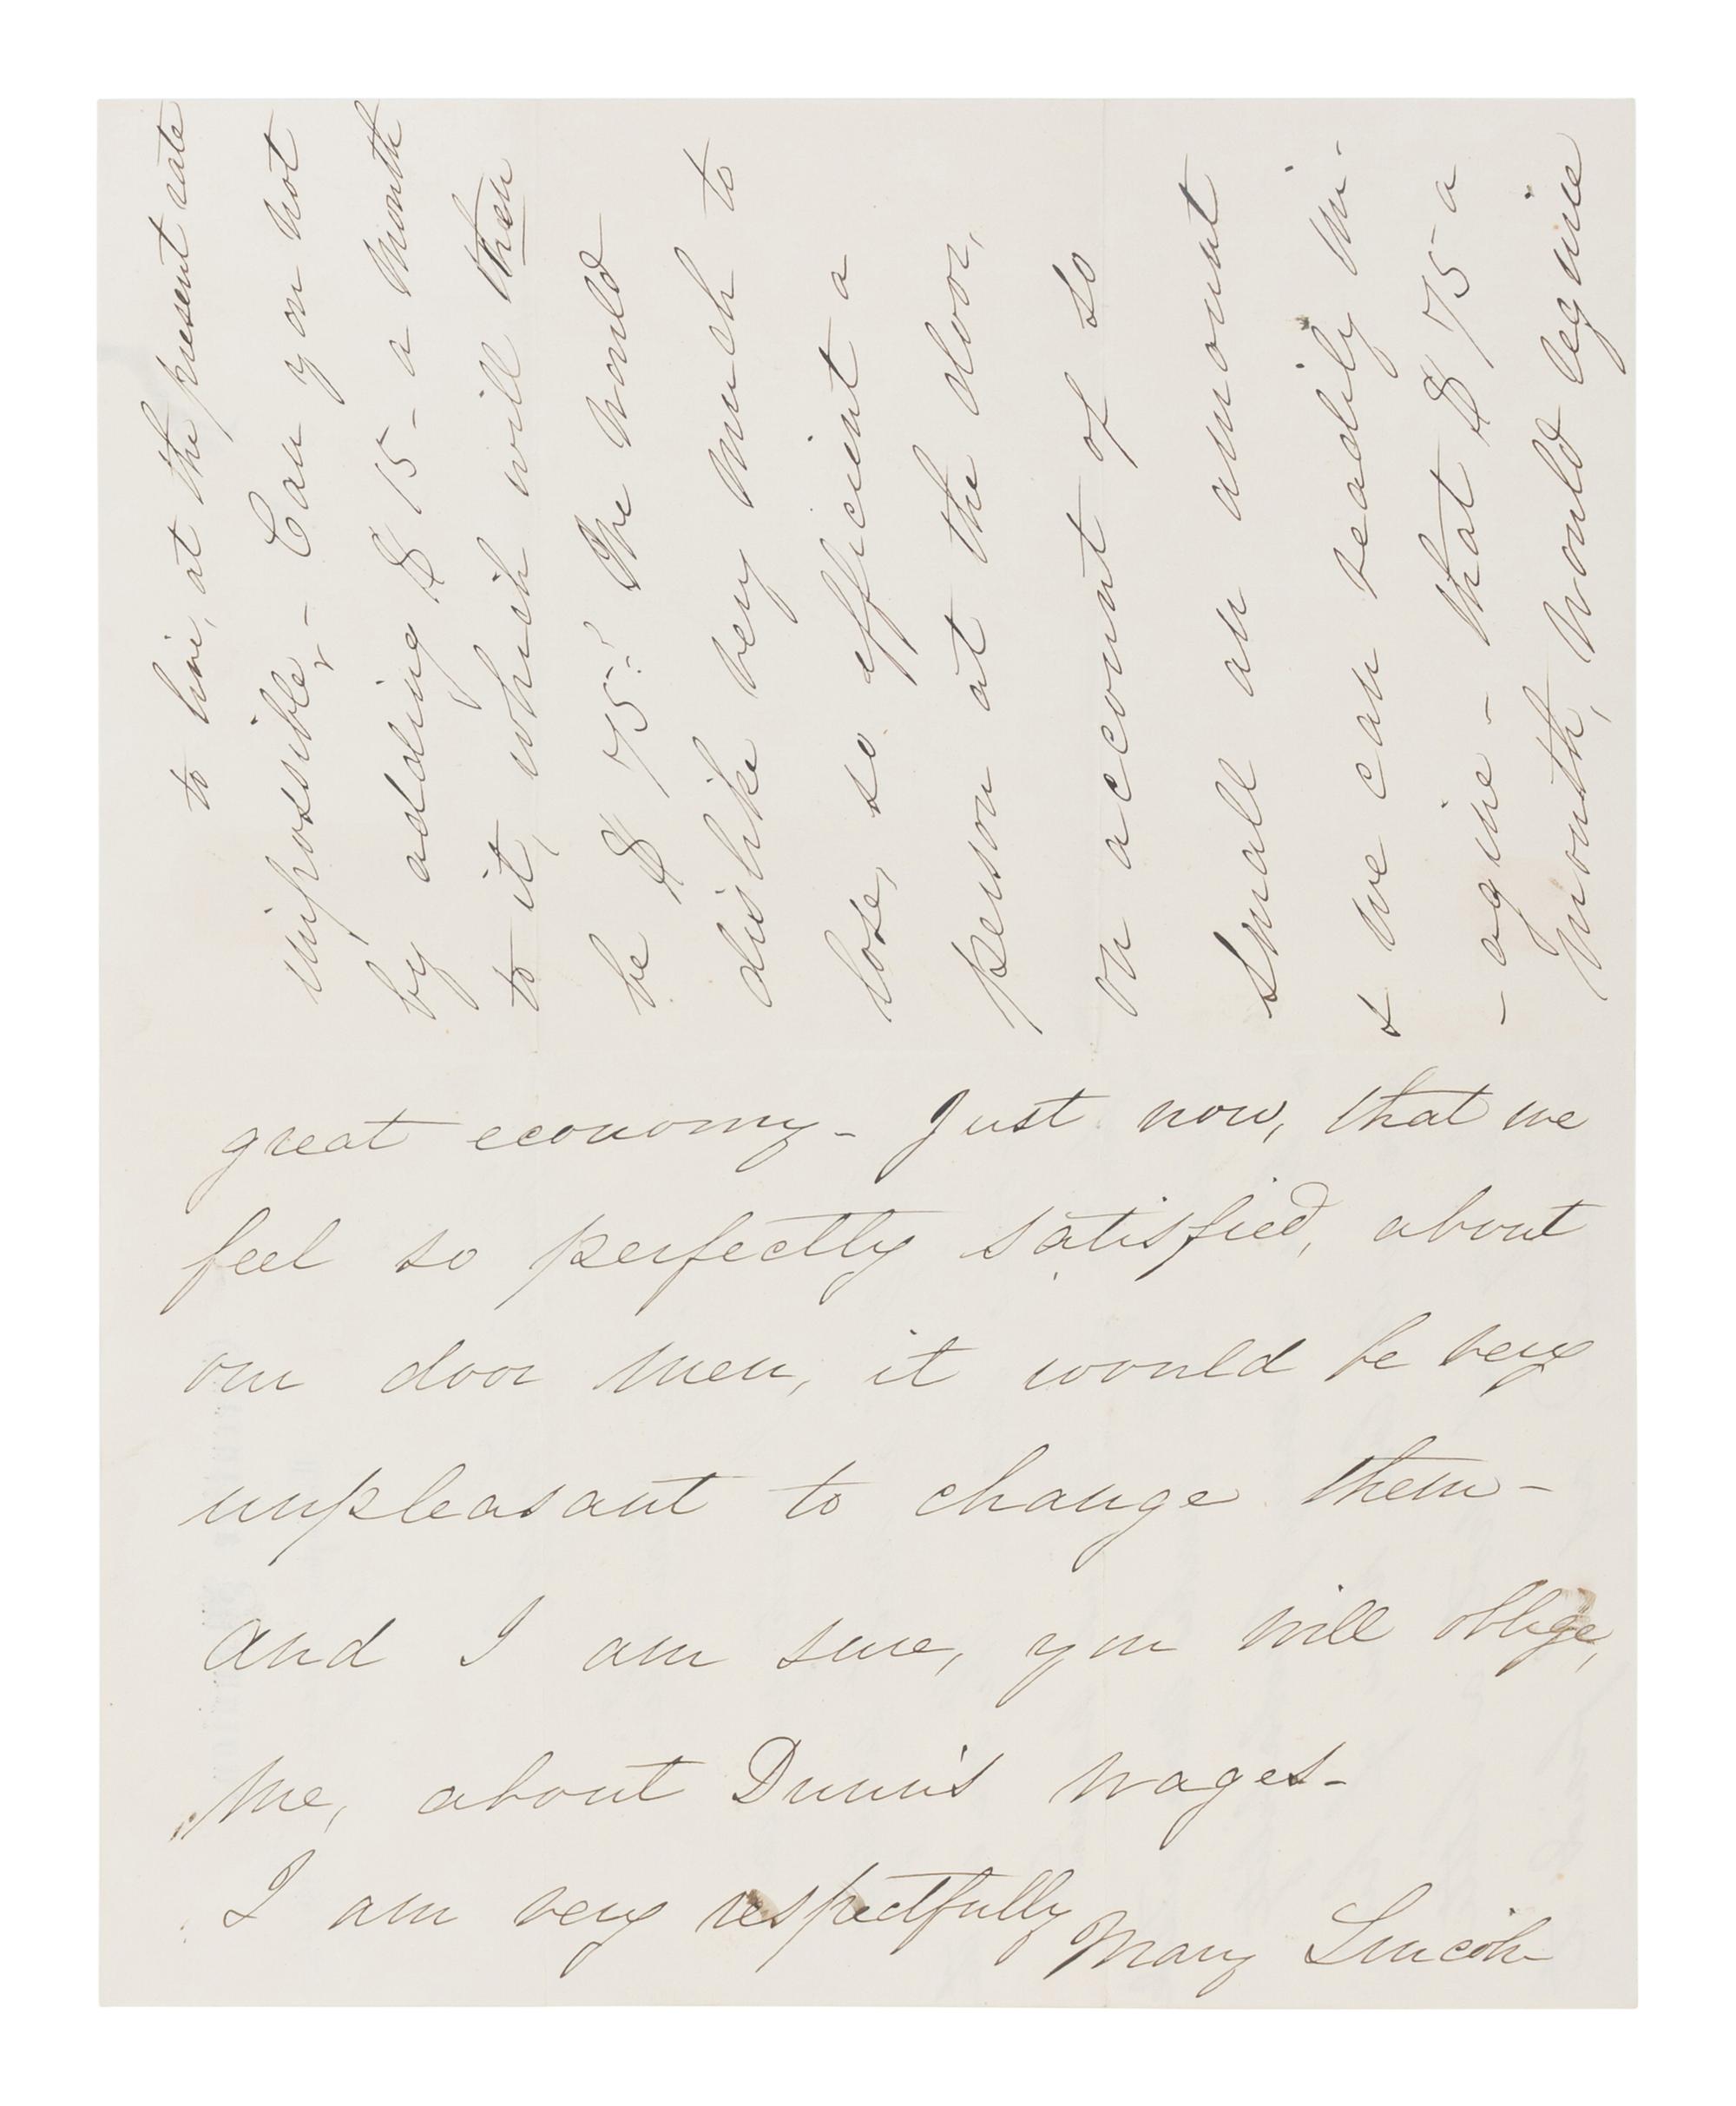 to live, at the present rate
impossible, - Can you not
by adding $15 - a month
to it, which will then
be $75? We would
dislike very much to
lose, so efficient a
person at the door,
on account of so
small an amount
& we can readily im-
- agine - that $75 a
month, would require
great economy - Just now, that we
feel so perfectly satisfied, about
our door men, it would be very
unpleasant to change them -
And I am sure, you will oblige,
me, about Dunn's wages -
I am very respectfully
Mary Lincoln